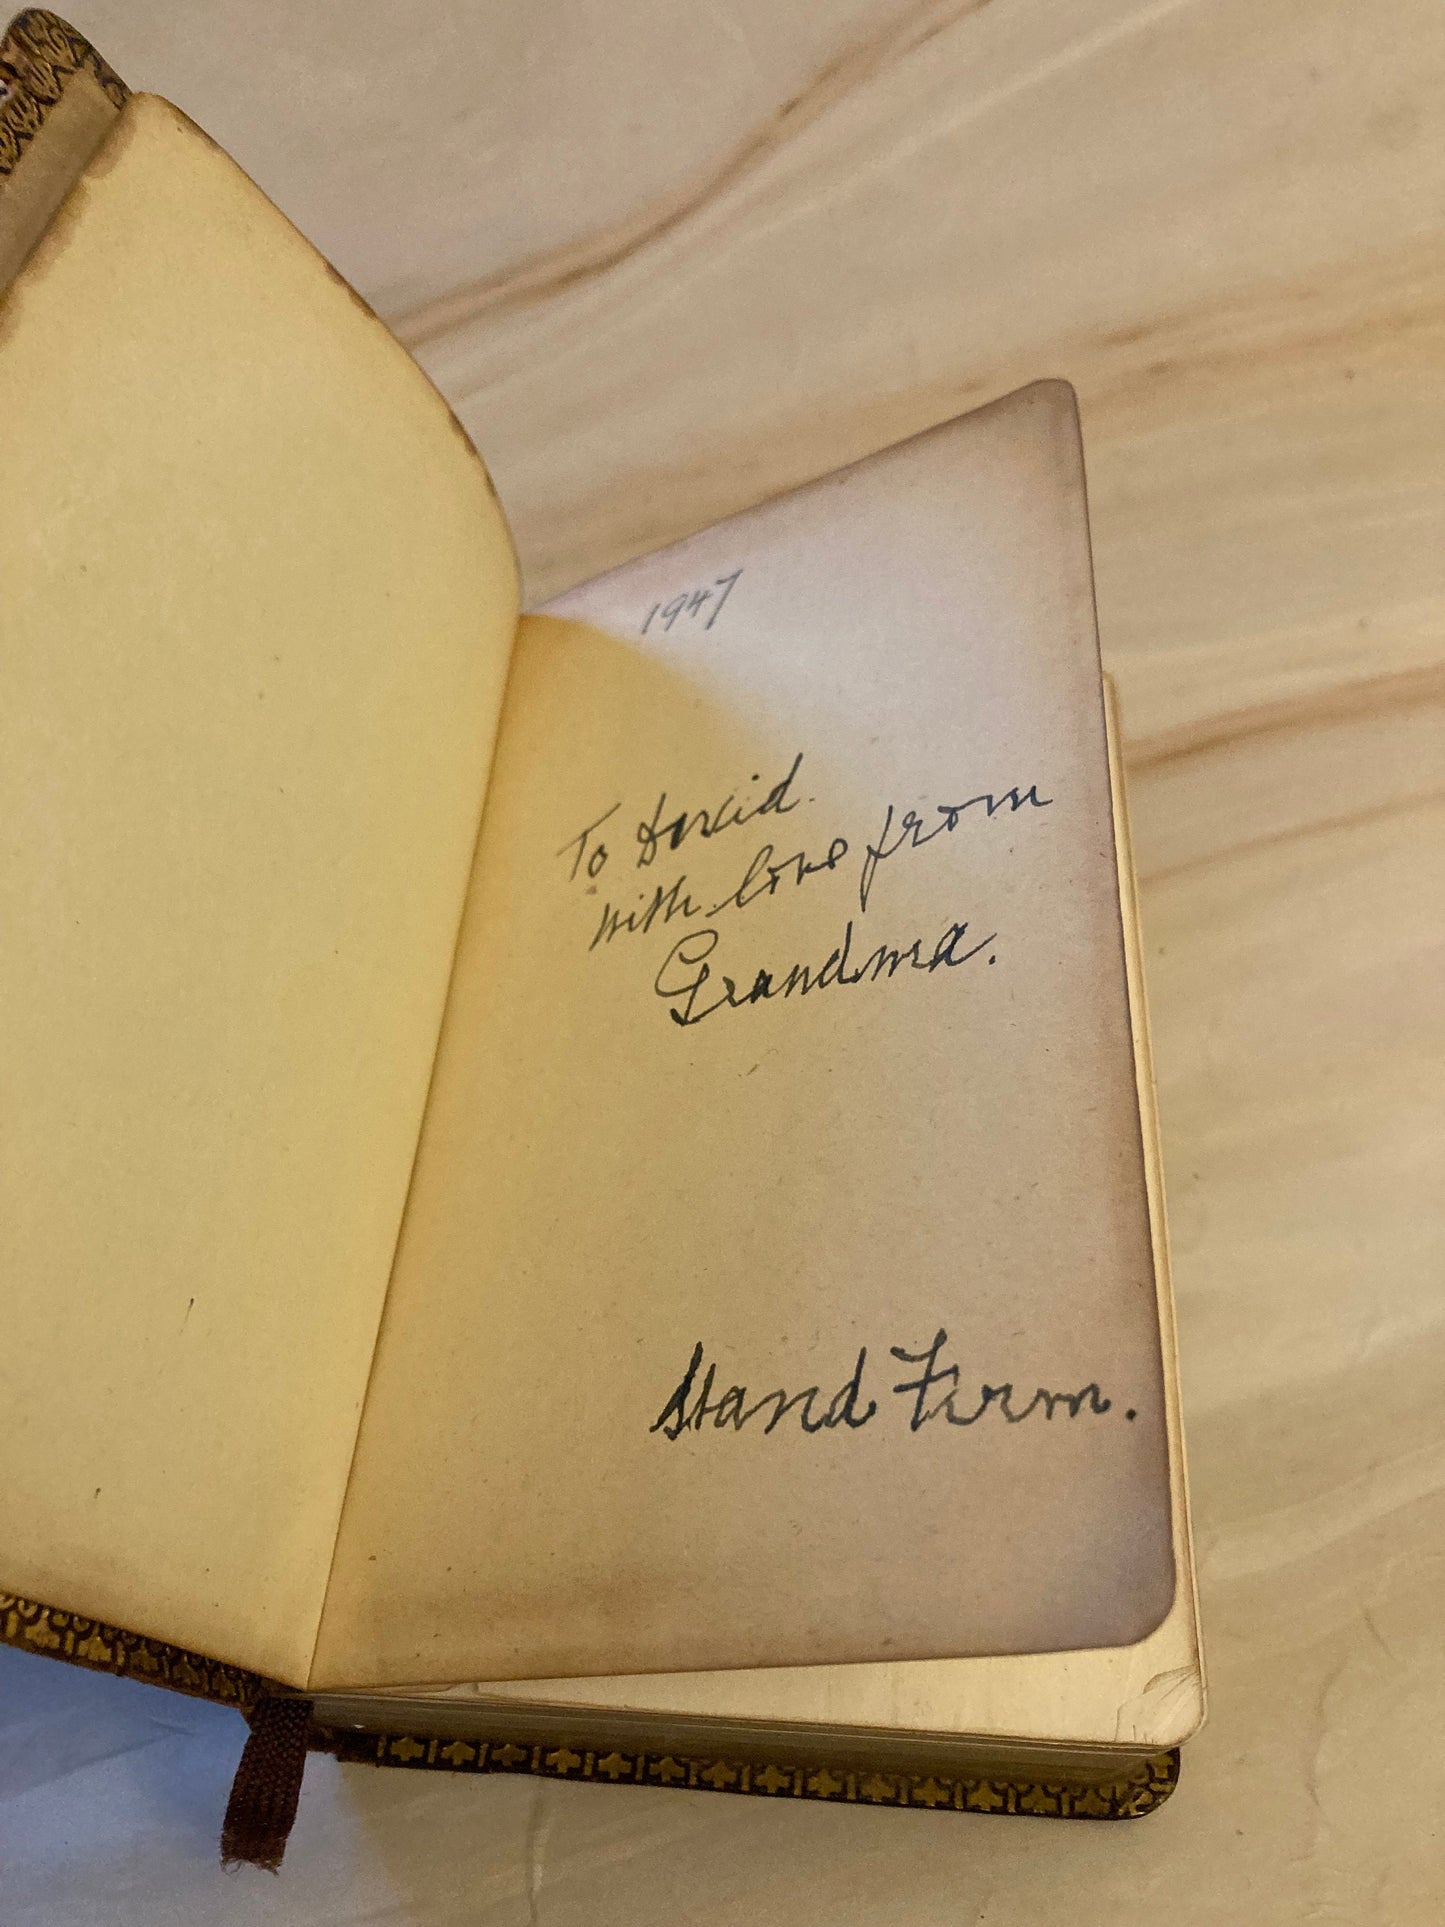 1947
To David.
with love from
Grandma.
Stand Firm.